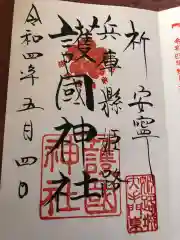 祈 安寧
兵庫縣 姫路
護國神社
令和四年五月四日
護國
神社